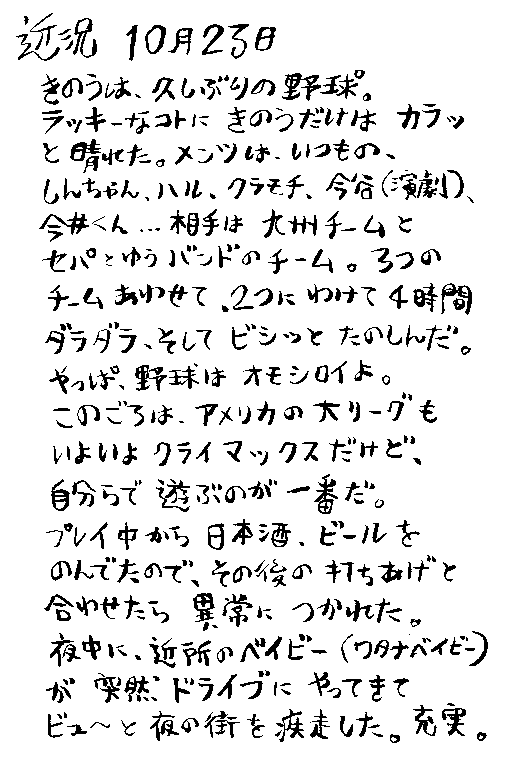 近況 10月23日
きのうは、久しぶりの野球。
ラッキーなコトに きのうだけは カラッ
と晴れた。メンツは、いつもの、
しんちゃん、ハル、クラモチ、今谷(演劇)、
今井くん…相手は 九州チームと
セパとゆうバンドのチーム。3つの
チームあわせて、2つにわけて4時間
ダラダラ、そして ビシッと たのしんだ。
やっぱ、野球は オモシロイよ。
このごろは、アメリカの大リーグも
いよいよクライマックスだけど、
自分らで 遊ぶのが 一番だ。
プレイ中から 日本酒、ビールを
のんでたので、その後の打ちあげと
合わせたら 異常に つかれた。
夜中に、近所のベイビー(ワタナベイビー)
が 突然、ドライブに やってきて
ビュ〜と 夜の街を疾走した。充実。